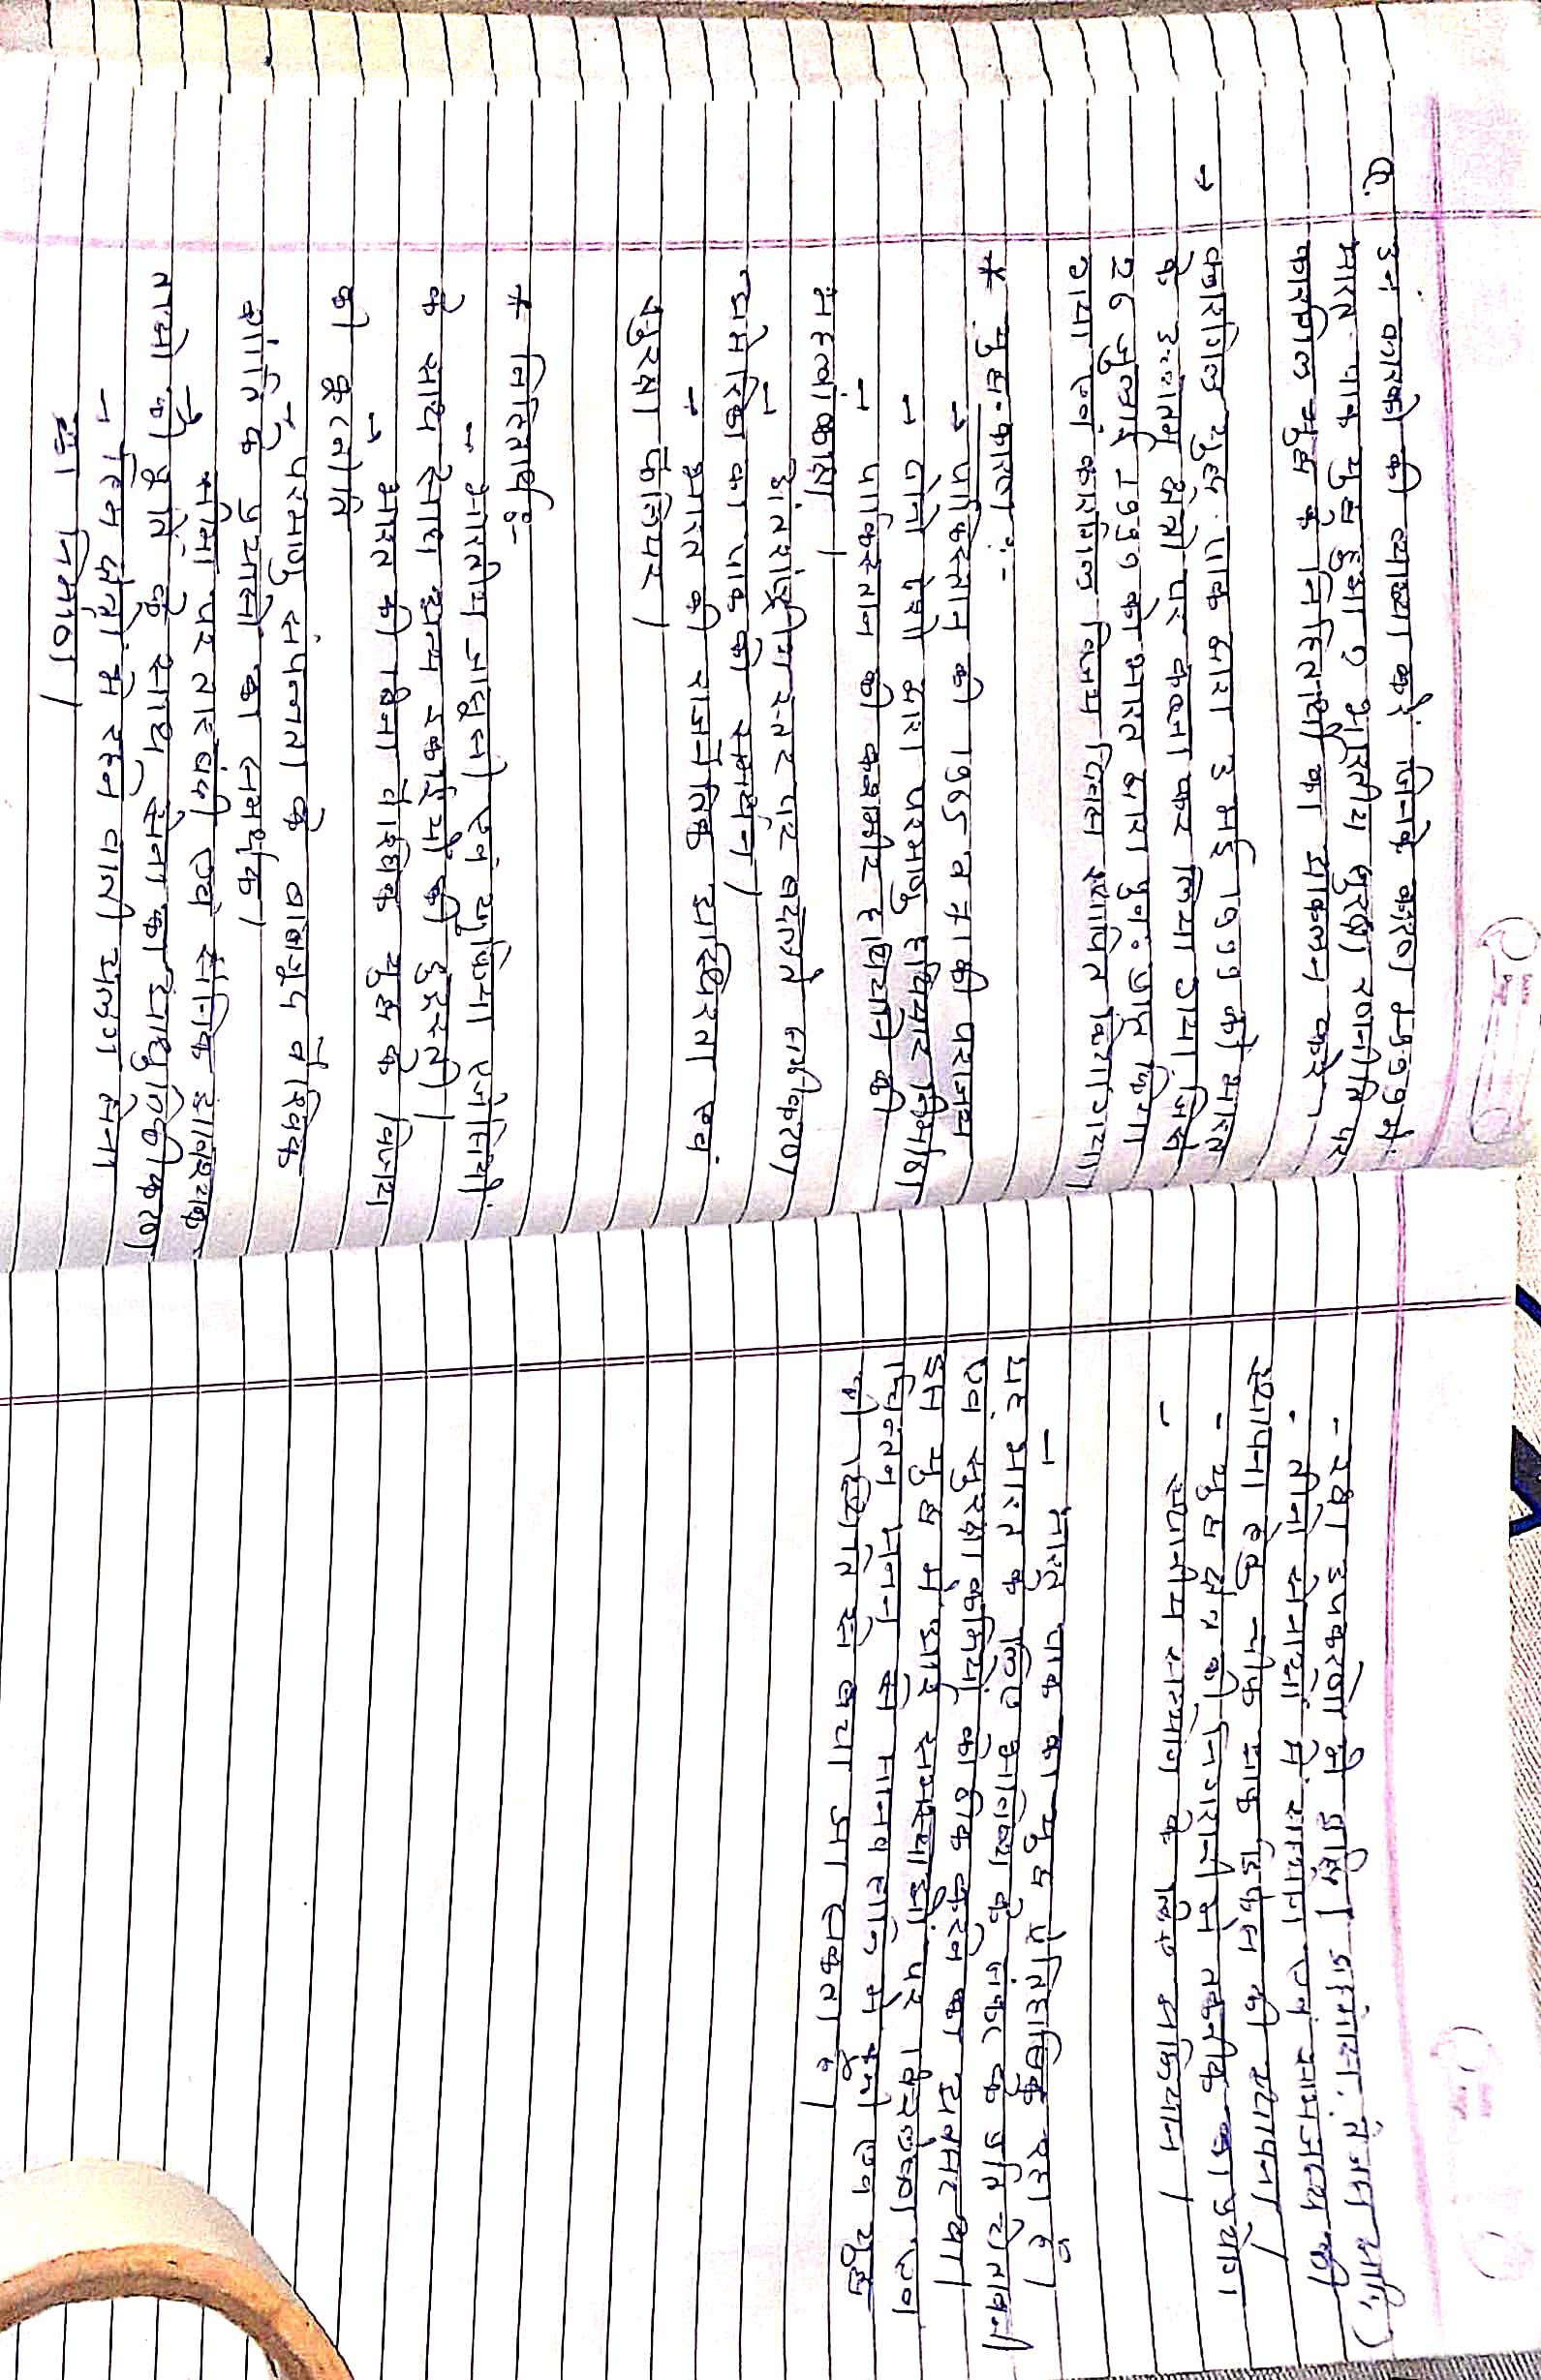 Q. उन कारकों की व्याख्या करें जिनके कारण 1999 में
भारत-पाक युद्ध हुआ? भारतीय सुरक्षा रणनीति पर
कारगिल युद्ध के निहितार्थों का आकलन करें-
→ कारगिल युद्ध पाक द्वारा 3 मई 1999 को भारत
के उच्चतम क्षेत्रों पर कब्जा कर लिया गया जिसे
26 जुलाई 1999 को भारत द्वारा पुनः प्राप्त किया
गया एवं कारगिल विजय दिवस स्थापित किया गया।
* युद्ध-कारण:-
→ पाकिस्तान की 1965 व 71 की पराजय
→ दोनों देशों द्वारा परमाणु हथियार निर्माण
→ पाकिस्तान की कश्मीर हथियाने की
महत्वाकांक्षा।
→ अंतर्राष्ट्रीय स्तर पर बदलते समीकरण
(अमेरिका का पाक को समर्थन)
→ भारत की राजनैतिक अस्थिरता एवं
असुरक्षा कैलिपर।
* निहितार्थ:-
→ भारतीय आसूचना एवं खुफिया एजेंसियों
के साथ सेना अन्य इकाईयों की दुरुस्ती।
→ भारत की बिना वैश्विक युद्ध के विजय
की कूटनीति
→ परमाणु संपन्नता के बावजूद वैश्विक
शांति के प्रयासों का समर्थक।
→ सीमा पर तारबंदी एवं सैनिक आवश्यक-
ताओं की पूर्ति के साथ सेना का आधुनिकीकरण
→ रिस्क क्षेत्रों में रहने वाली अलग सेना
का निर्माण।
- रक्षा उपकरणों की प्राप्ति। ब्रह्मोस, तेजस आदि)
- तीनों सेनाओं में सामान एवं सामंजस्य की
स्थापना हेतु चीफ ऑफ डिफेंस की स्थापना।
- युद्ध क्षेत्र की निगरानी में तकनीक का प्रयोग
- स्थानीय सहयोग के लिए सक्रियता।
→ भारत पाक का युद्ध ऐतिहासिक रहा है।
यह भारत के लिए भविष्य के संकट के प्रति चेतावनी
एवं सुरक्षा कमियों को ठीक करने का अवसर था।
इस युद्ध में आई समस्याओं पर विश्लेषण एवं
चिन्तन मनन से मानव हानि में कमी एवं युद्ध
की स्थिति से बचा जा सकता है।